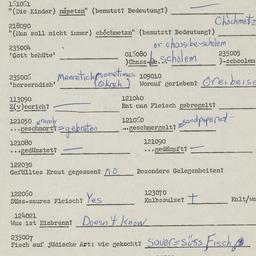 151061
"(Die Kinder) nápetzn" (benutzt? Bedeutung?)
218090 Chóchmetz
"(Mun soll nicht immer) chóchmetzn" (benutzt? Bedeutung?)
235004 or chaas be-scholem
'Gott behüte' 015080 scholem 235005
)-schoolem
235006 Meerretich sometimes 109010
'horseradish' (Okreh) Voraus gerieben? Oreibeise
113090 121040
Z(v)orich? Hat man Fleisch gebregelt?
121050 121060
...geschmort? = gebraten ...geschmergelt?
121080 121090
...gedünstet? ...gedämpft?
122030
Gefülltes Kraut gegessen? no Besondere Gelegenheiten?
122060 123070
Süss-saures Fleisch? Yes Kalbssulze? +
124021
Was ist Eisbrenn? Doesn't know
235007
Fisch auf jüdische Art: wie gekocht? Sauer=Süss Fisch